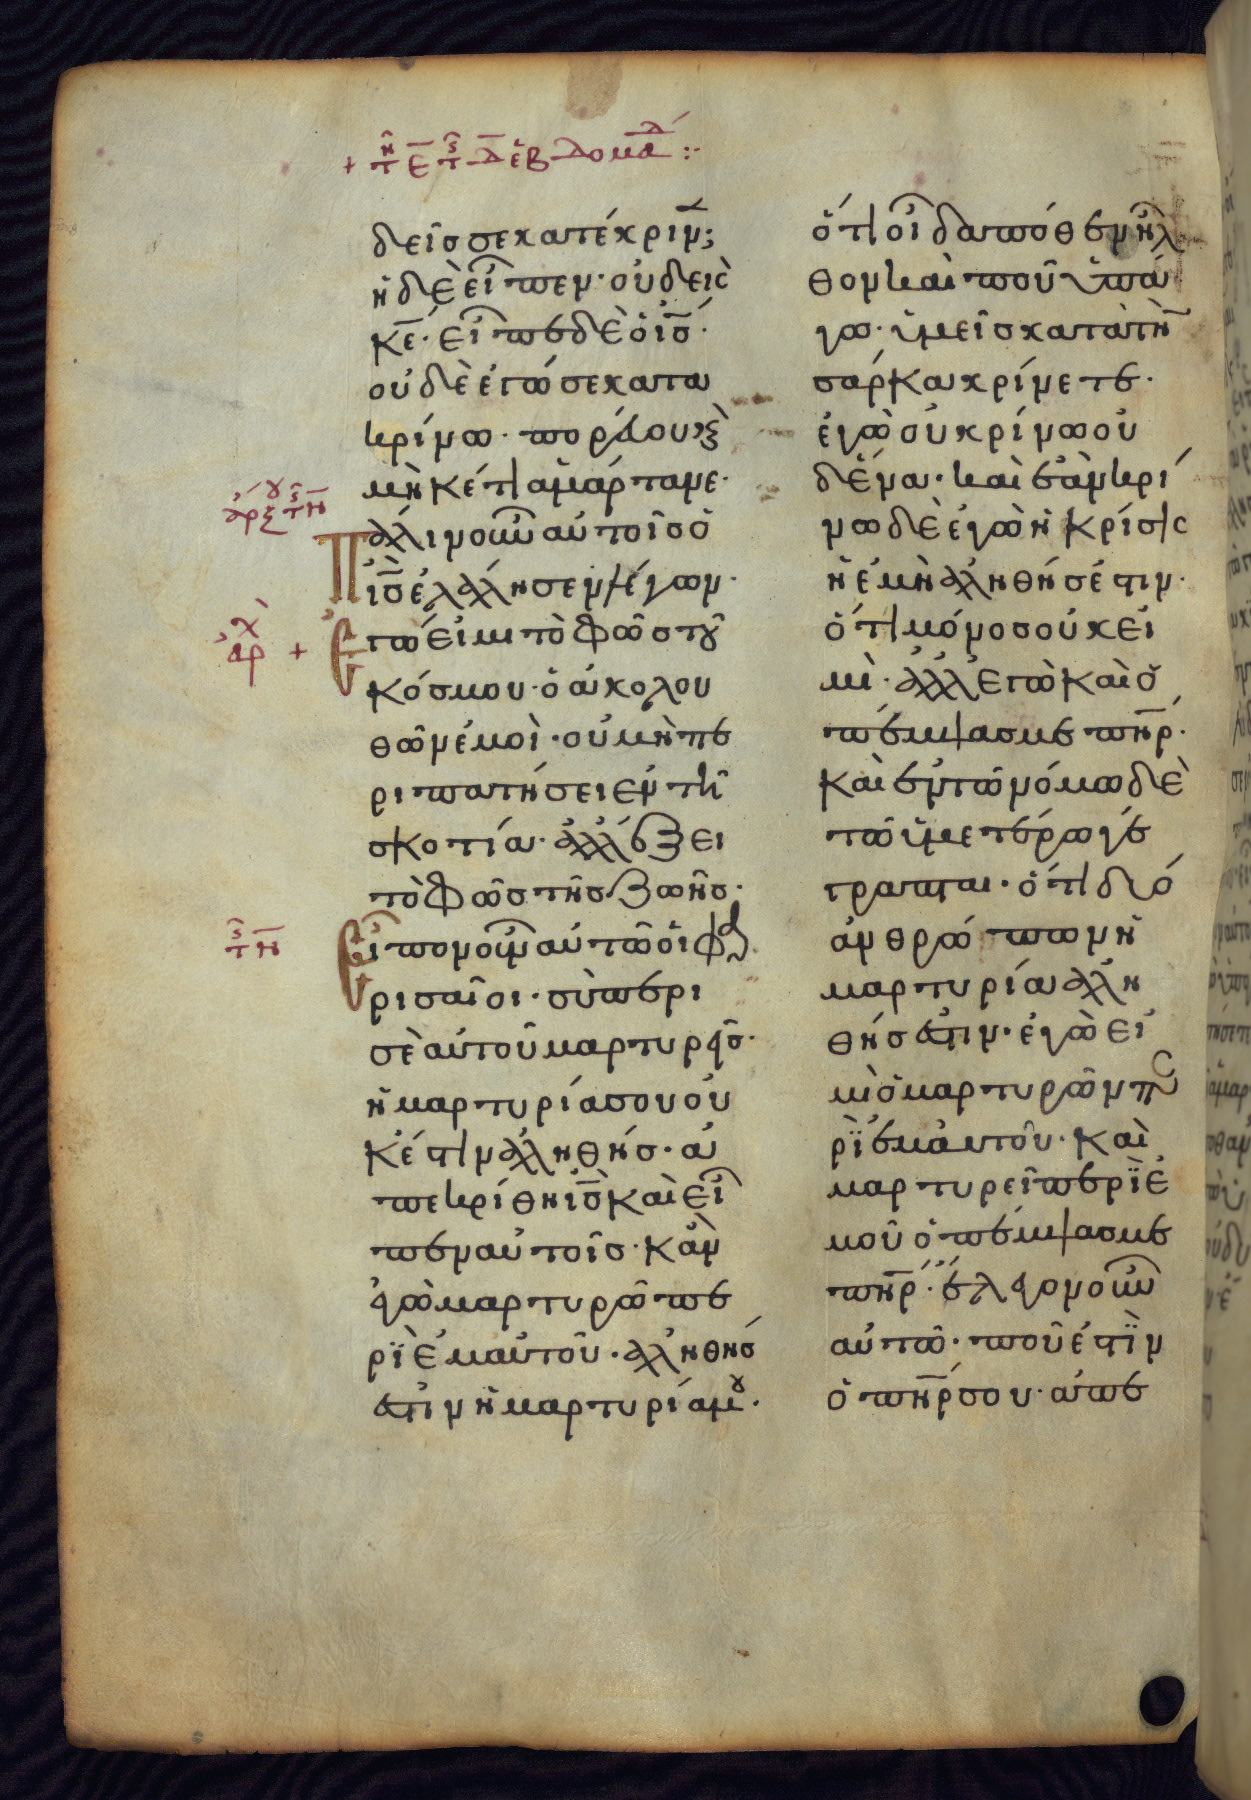 + τη ε τς δ ἑβδομάδ :·
δείς σε κατέκριν;
ἡ δὲ εἶπεν· οὐδεὶς
κ̅ε̅· εἶπε δὲ ὁ ι̅ς̅·
οὐδὲ ἐγώ σε κατα
κρίνω· πορεύου καὶ
μηκέτι ἁμάρτανε·
ἀρξ τς τη
Πάλιν οὖν αὐτοῖς ὁ
ι̅ς̅ ἐλάλησεν λέγων·
ἀρχ + Ἐγώ εἰμι τὸ φῶς τοῦ
κόσμου· ὁ ἀκολου
θῶν ἐμοὶ· οὐ μὴ πε
ριπατήσει ἐν τῆ
σκοτία· ἀλλ' ἕξει
τὸ φῶς τῆς ζωῆς·
τς τη
Εἶπον οὖν αὐτῶ οἱ φα
ρισαῖοι· σὺ περὶ
σεαυτοῦ μαρτυρεῖς·
ἡ μαρτυρία σου οὐ
κ ἔστιν ἀληθής· ἀ
πεκρίθη ι̅ς̅ καὶ εἶ
πεν αὐτοῖς· κἀν
ἐγὼ μαρτυρῶ πε
ρὶ ἐμαυτοῦ· ἀληθής
ἐστιν ἡ μαρτυρία μου·
ὅτι οἶδα πόθεν ἦλ
θον καὶ ποῦ ὑπά
γω· ὑμεῖς κατὰ τὴν
σάρκα κρίνετε·
ἐγὼ οὐ κρίνω οὐ
δένα· καὶ ἐὰν κρί
νω δὲ ἐγὼ ἡ κρίσις
ἡ ἐμὴ ἀληθής ἐστιν·
ὅτι μόνος οὐκ εἰ
μὶ· ἀλλ' ἐγὼ καὶ ὁ
πέμψας με π̅η̅ρ̅·
καὶ ἐν τῶ νόμω δὲ
τῶ ὑμετέρω γέ
γραπται· ὅτι δύο
ἀνθρώπων ἡ
μαρτυρία ἀλη
θής ἐστιν· ἐγὼ εἰ
μὶ ὁ μαρτυρῶν πε
ρὶ ἐμαυτοῦ· καὶ
μαρτυρεῖ περὶ ἐ
μοῦ ὁ πέμψας με
π̅η̅ρ̅· ἔλεγον οὖν
αὐτῶ· ποῦ ἐστὶν
ὁ π̅η̅ρ̅ σου· ἀπε